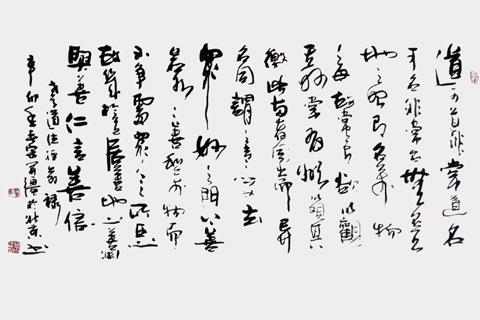 道可道非常道名
可名非常名無名天
地之始有名萬物
之母故常無欲以觀
其妙常有欲以觀其
徼此兩者同出而異
名同謂之玄之又玄
眾妙之門上善
若水水善利萬物而
不爭處眾人之所惡
故幾於道居善地心善淵
與善仁言善信
老子道德經節錄
辛卯年於北京